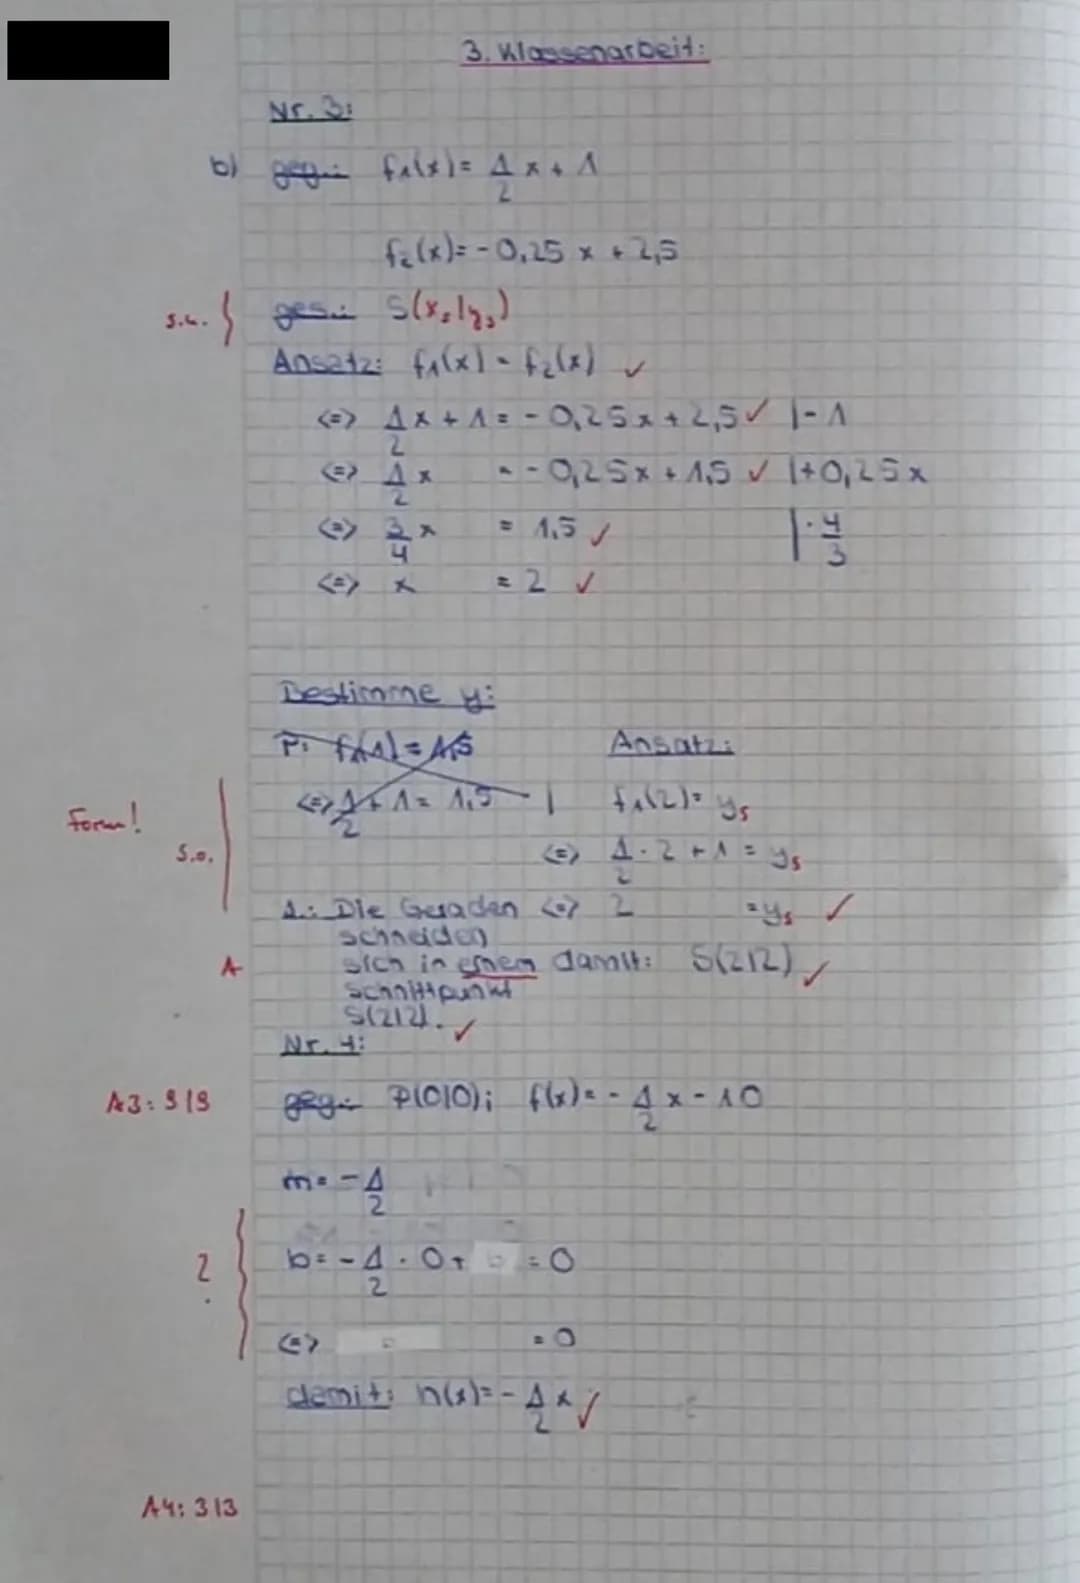 3. Klassenarbeit:
Nr. 3:
b) geg.: f₁(x) = 1/2 x + 1
f₂(x) = - 0,25 x + 2,5
s.u. } ges.: S(xₛ|yₛ)
Ansatz: f₁(x) = f₂(x) ✓
<=> 1/2 x + 1 = - 0,25x + 2,5 ✓ |- 1
<=> 1/2 x = - 0,25x + 1,5 ✓ |+0,25x
<=> 3/4 x = 1,5 ✓ |· 4/3
<=> x = 2 ✓
Bestimme y:
P: f₁(1) = 1,5 Ansatz:
<=> 1/2 + 1 = 1,5 | f₁(2) = yₛ
Form!
s.o.
<=> 1/2 · 2 + 1 = yₛ
A.: Die Geraden <=> 2 = yₛ ✓
schneiden
A sich in einem damit: S(2|2) ✓
Schnittpunkt
S(2|2). ✓
Nr. 4:
A3: 9/9 geg.: P(0|0); f(x) = - 1/2 x - 10
m = - 1/2
? b = - 1/2 · 0 + b = 0
<=> = 0
damit: h(x) = - 1/2 x ✓
A4: 3/3